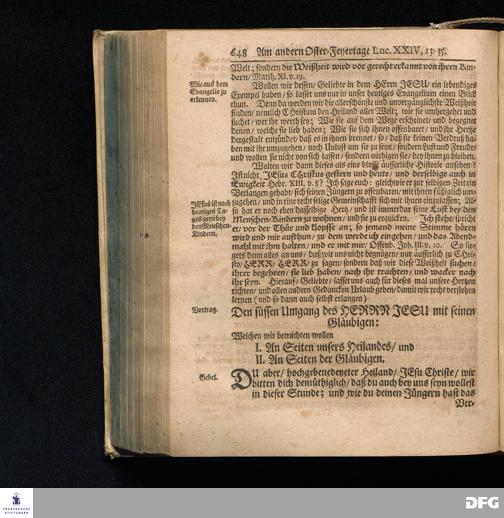 648 Am andern Oster-Feyertage Luc. XXIV, 13-35.
Welt; sondern die Weißheit wird vor gerecht erkannt von ihren Kin-
dern/ Matth. XI. v. 19.
Wie aus dem
Evangelio zu
erkennen.
Wollen wir dessen/ Geliebte in dem HErrn JESU/ ein lebendiges
Exempel haben/ so lasset uns nur in unser heutiges Evangelium einen Blick
thun. Denn da werden wir die allerschönste und unvergänglichste Weißheit
finden/ nemlich Christum den Heiland aller Welt; wie sie umhergehet und
suchet/ wer ihr werth sey; Wie sie auf dem Wege erscheinet/ und begegnet
denen/ welche sie lieb haben; Wie sie sich ihnen offenbaret/ und ihr Hertz
dergestalt entzündet/ daß es in ihnen brennet/ so/ daß sie keinen Verdruß ha-
ben mit ihr umzugehen/ noch Unlust um sie zu seyn/ sondern Lust und Freude/
und wollen sie nicht von sich lassen/ sondern nöthigen sie/ bey ihnen zu bleiben.
Wolten wir dann dieses als eine bloß äusserliche Historie ansehen?
Ist nicht JEsus Christus gestern und heute/ und derselbige auch in
Ewigkeit Hebr. XIII. v. 8? Ich sage euch: gleichwie er zur selbigen Zeit ein
Verlangen gehabt/ sich seinen Jüngern zu offenbaren/ mit ihnen süßiglich um-
JEsus ist noch
heutiges Ta-
ges gern bey
den Menschen-
Kindern,
zugehen/ und in eine recht selige Gemeinschafft sich mit ihnen einzulassen; Al-
so hat er noch eben dasselbige Hertz/ und ist immerdar seine Lust bey den
Menschen-Kindern zu wohnen/ und sie zu erquicken. Ich stehe (spricht
er) vor der Thür und klopffe an; so jemand meine Stimme hören
wird und mir aufthun/ zu dem werde ich eingehen/ und das Abend-
mahl mit ihm halten/ und er mit mir/ Offenb. Joh. III. v. 20. So lie-
get denn alles an uns/ daß wir uns nicht begnügen/ nur äusserlich zu Chri-
sto/ HERR/ HERR/ zu sagen/ sondern daß wir diese Weißheit suchen/
ihrer begehren/ sie lieb haben/ nach ihr trachten/ und wacker nach
ihr seyn. Hierauf/ Geliebte/ lasset uns auch für dieses mal unsere Hertzen
richten/ und allen andern Gedancken Urlaub geben/ damit wir recht verstehen
lernen (und so dann auch selbst erlangen)
Vortrag.
Den süssen Umgang des HERRN JESU mit seinen
Gläubigen:
Welchen wir betrachten wollen
I. An Seiten unsers Heilandes/ und
II. An Seiten der Gläubigen.
Gebet.
DU aber/ hochgebenedeyeter Heiland/ JEsu Christe/ wir
bitten dich demüthiglich/ daß du auch bey uns seyn wollest
in dieser Stunde: und wie du deinen Jüngern hast das
Ver-
FRANCKESCHE
STIFTUNGEN
DFG